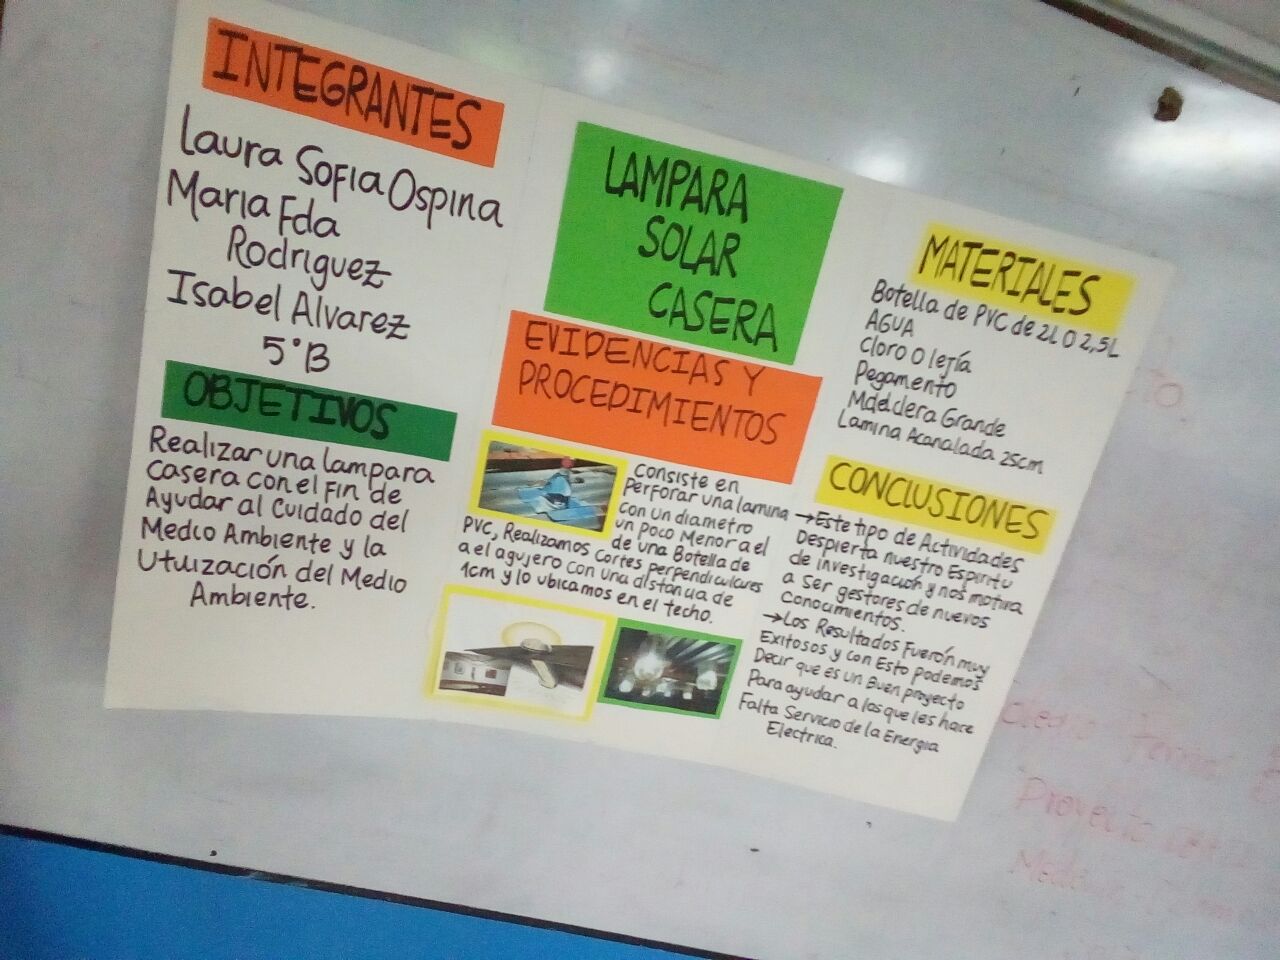 INTEGRANTES
Laura Sofia Ospina
Maria Fda
Rodriguez
Isabel Alvarez
5°B
OBJETIVOS
Realizar una lampara
casera con el Fin de
Ayudar al Cuidado del
Medio Ambiente y la
Utilización del Medio
Ambiente.
LAMPARA
SOLAR
CASERA
EVIDENCIAS Y
PROCEDIMIENTOS
Consiste en
Perforar una lamina
con un diametro
un poco Menor a el
de una Botella de
PVC, Realizamos Cortes perpendiculares
a el agujero con una distancia de
1cm y lo ubicamos en el techo.
MATERIALES
Botella de PVC de 2L O 2,5L
AGUA
Cloro O lejía
Pegamento
Madera Grande
Lamina Acanalada 25cm
CONCLUSIONES
→Este tipo de Actividades
Despierta nuestro Espiritu
de investigación y nos motiva
a Ser gestores de nuevos
Conocimientos.
→Los Resultados Fuerón muy
Exitosos y con Esto podemos
Decir que es un Buen proyecto
Para ayudar a los que les hace
Falta Servicio de la Energia
Electrica.
Proyecto